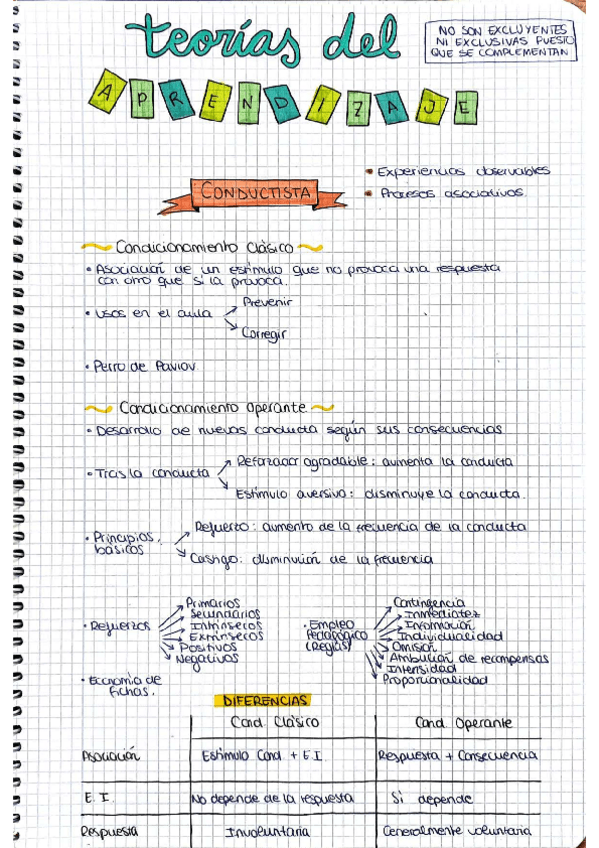 teorías del
APRENDIZAJE
NO SON EXCLUYENTES
NI EXCLUSIVAS PUESTO
QUE SE COMPLEMENTAN
CONDUCTISTA
• Experiencias observables
• Procesos asociativos.
~ Condicionamiento Clásico ~
• Asociación de un estímulo que no provoca una respuesta
con otro que si la provoca.
• Usos en el aula
Prevenir
Corregir
• Perro de Pavlov
~ Condicionamiento Operante ~
• Desarrollo de nuevas conducta según sus consecuencias
• Tras la conducta
Reforzador agradable: aumenta la conducta
Estímulo aversivo: disminuye la conducta.
• Principios básicos
Refuerzo: aumento de la frecuencia de la conducta
Castigo: disminución de la frecuencia
• Refuerzos
Primarios
Secundarios
Intrínsecos
Extrínsecos
Positivos
Negativos
• Empleo
Pedagógico
(Reglas)
Contingencia
Inmediatez
Información
Individualidad
Omisión
Atribución de recompensas
Intensidad
Proporcionalidad
• Economía de
fichas.
DIFERENCIAS
Cond. Clásico Cond. Operante
Asociación Estímulo Cond + E.I. Respuesta + Consecuencia
E.I. No depende de la respuesta Si depende
Respuesta Involuntaria Generalmente voluntaria